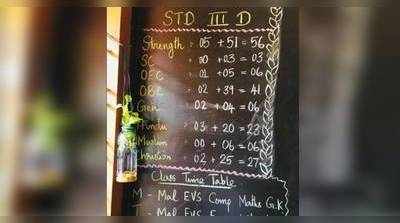 STD III D
Strength - 05 + 51 = 56
SC - 00 + 03 = 03
OEC - 01 + 05 = 06
OBC - 02 + 39 = 41
Gen - 02 + 04 = 06
Hindu - 03 + 20 = 23
Muslim - 00 + 06 = 06
Christian - 02 + 25 = 27
Class Time Table
M - Mal EVS Comp Maths G.K
T - Mal EVS